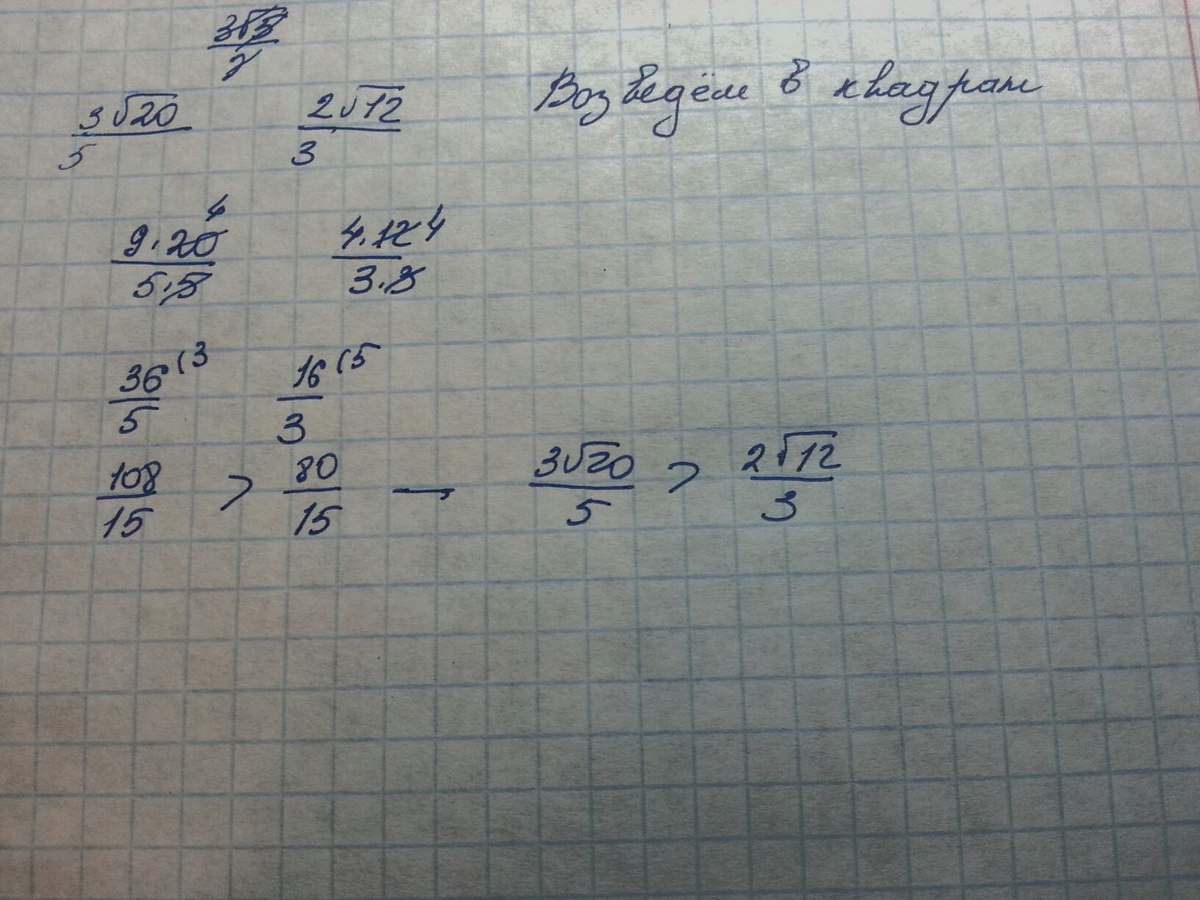 3√20/5 2√12/3 Возведём в квадрат
9·20 4/5·5 4·12 4/3·3
36 (3/5 16 (5/3
108/15 > 80/15 — 3√20/5 > 2√12/3